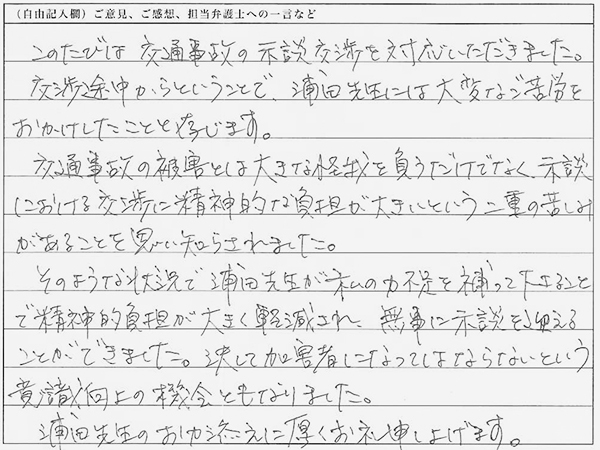 (自由記入欄)ご意見、ご感想、担当弁護士への一言など
このたびは交通事故の示談交渉を対応いただきました。
交渉途中からということで、浦田先生には大変なご苦労を
おかけしたことと存じます。
交通事故の被害とは大きな怪我を負うだけでなく、示談
における交渉に精神的な負担が大きいという二重の苦しみ
があることを思い知らされました。
そのような状況で浦田先生が私の力不足を補って下さること
で精神的負担が大きく軽減され、無事に示談を迎える
ことができました。決して加害者になってはならないという
意識向上の機会ともなりました。
浦田先生のお力添えに厚くお礼申し上げます。